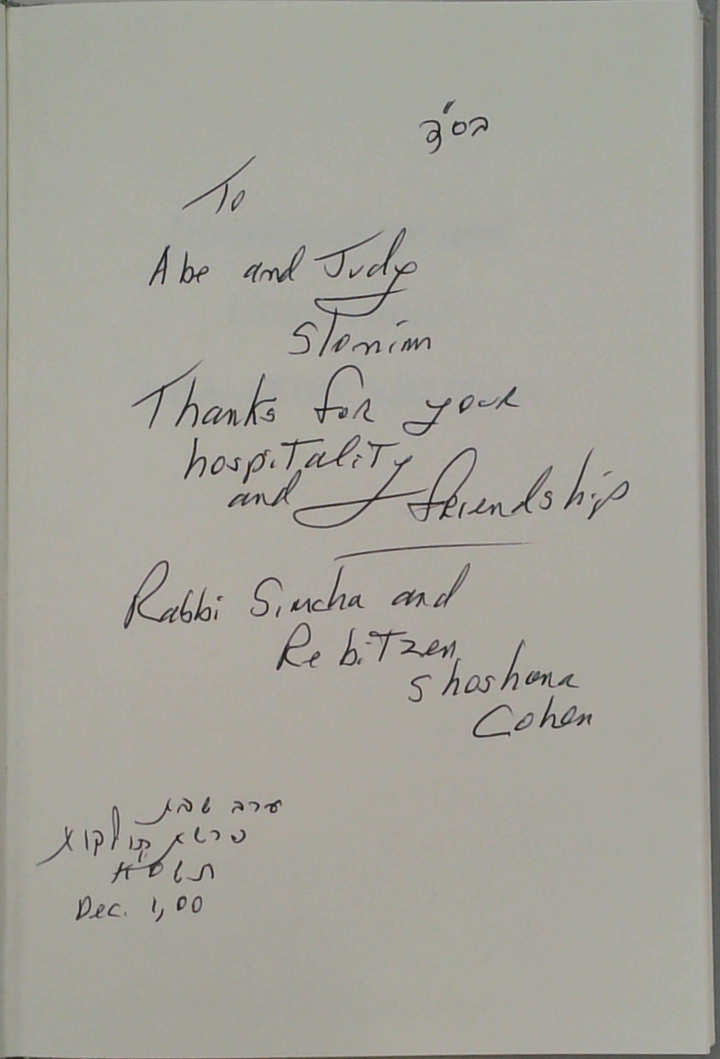 בס"ד
To
Abe and Judy
Slonim
Thanks for your
hospitality
and friendship
Rabbi Simcha and
Rebitzen
Shoshana
Cohen
ערב שבת
פרשת תולדות
תשסא
Dec. 1, 00